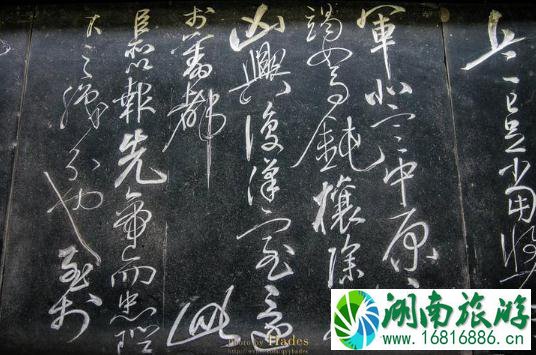 兵已足當獎
軍北定中原
竭駑鈍攘除
凶興復漢室還
於舊都 此
臣所以報先帝而忠陛
下之職分也至於
Photo by Hades
湖南旅游
www.16816886.cn